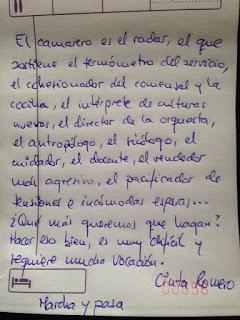 El camarero es el radar, el que
sostiene el termómetro del servicio,
el cohesionador del comensal y la
cocina, el intérprete de culturas
nuevas, el director de la orquesta,
el antropólogo, el sicólogo, el
cuidador, el docente, el vendedor
más agresivo, el pacificador de
tensiones e incómodas esperas...
¿Qué más queremos que hagan?
Hacer eso bien, es muy difícil y
requiere mucha vocación.
Cinta Romero
Marcha y pasa